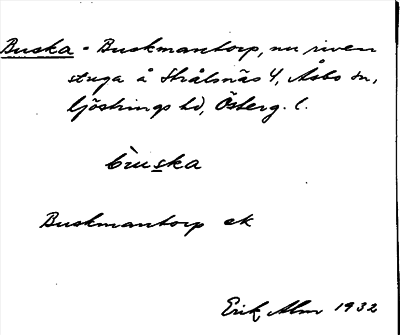 Buska - Buskmantorp, nu riven
stuga å Strålsnäs 4, Åsbo sn,
Göstrings hd, Österg. l.
bùska
Buskmantorp ek
Erik Alm 1932